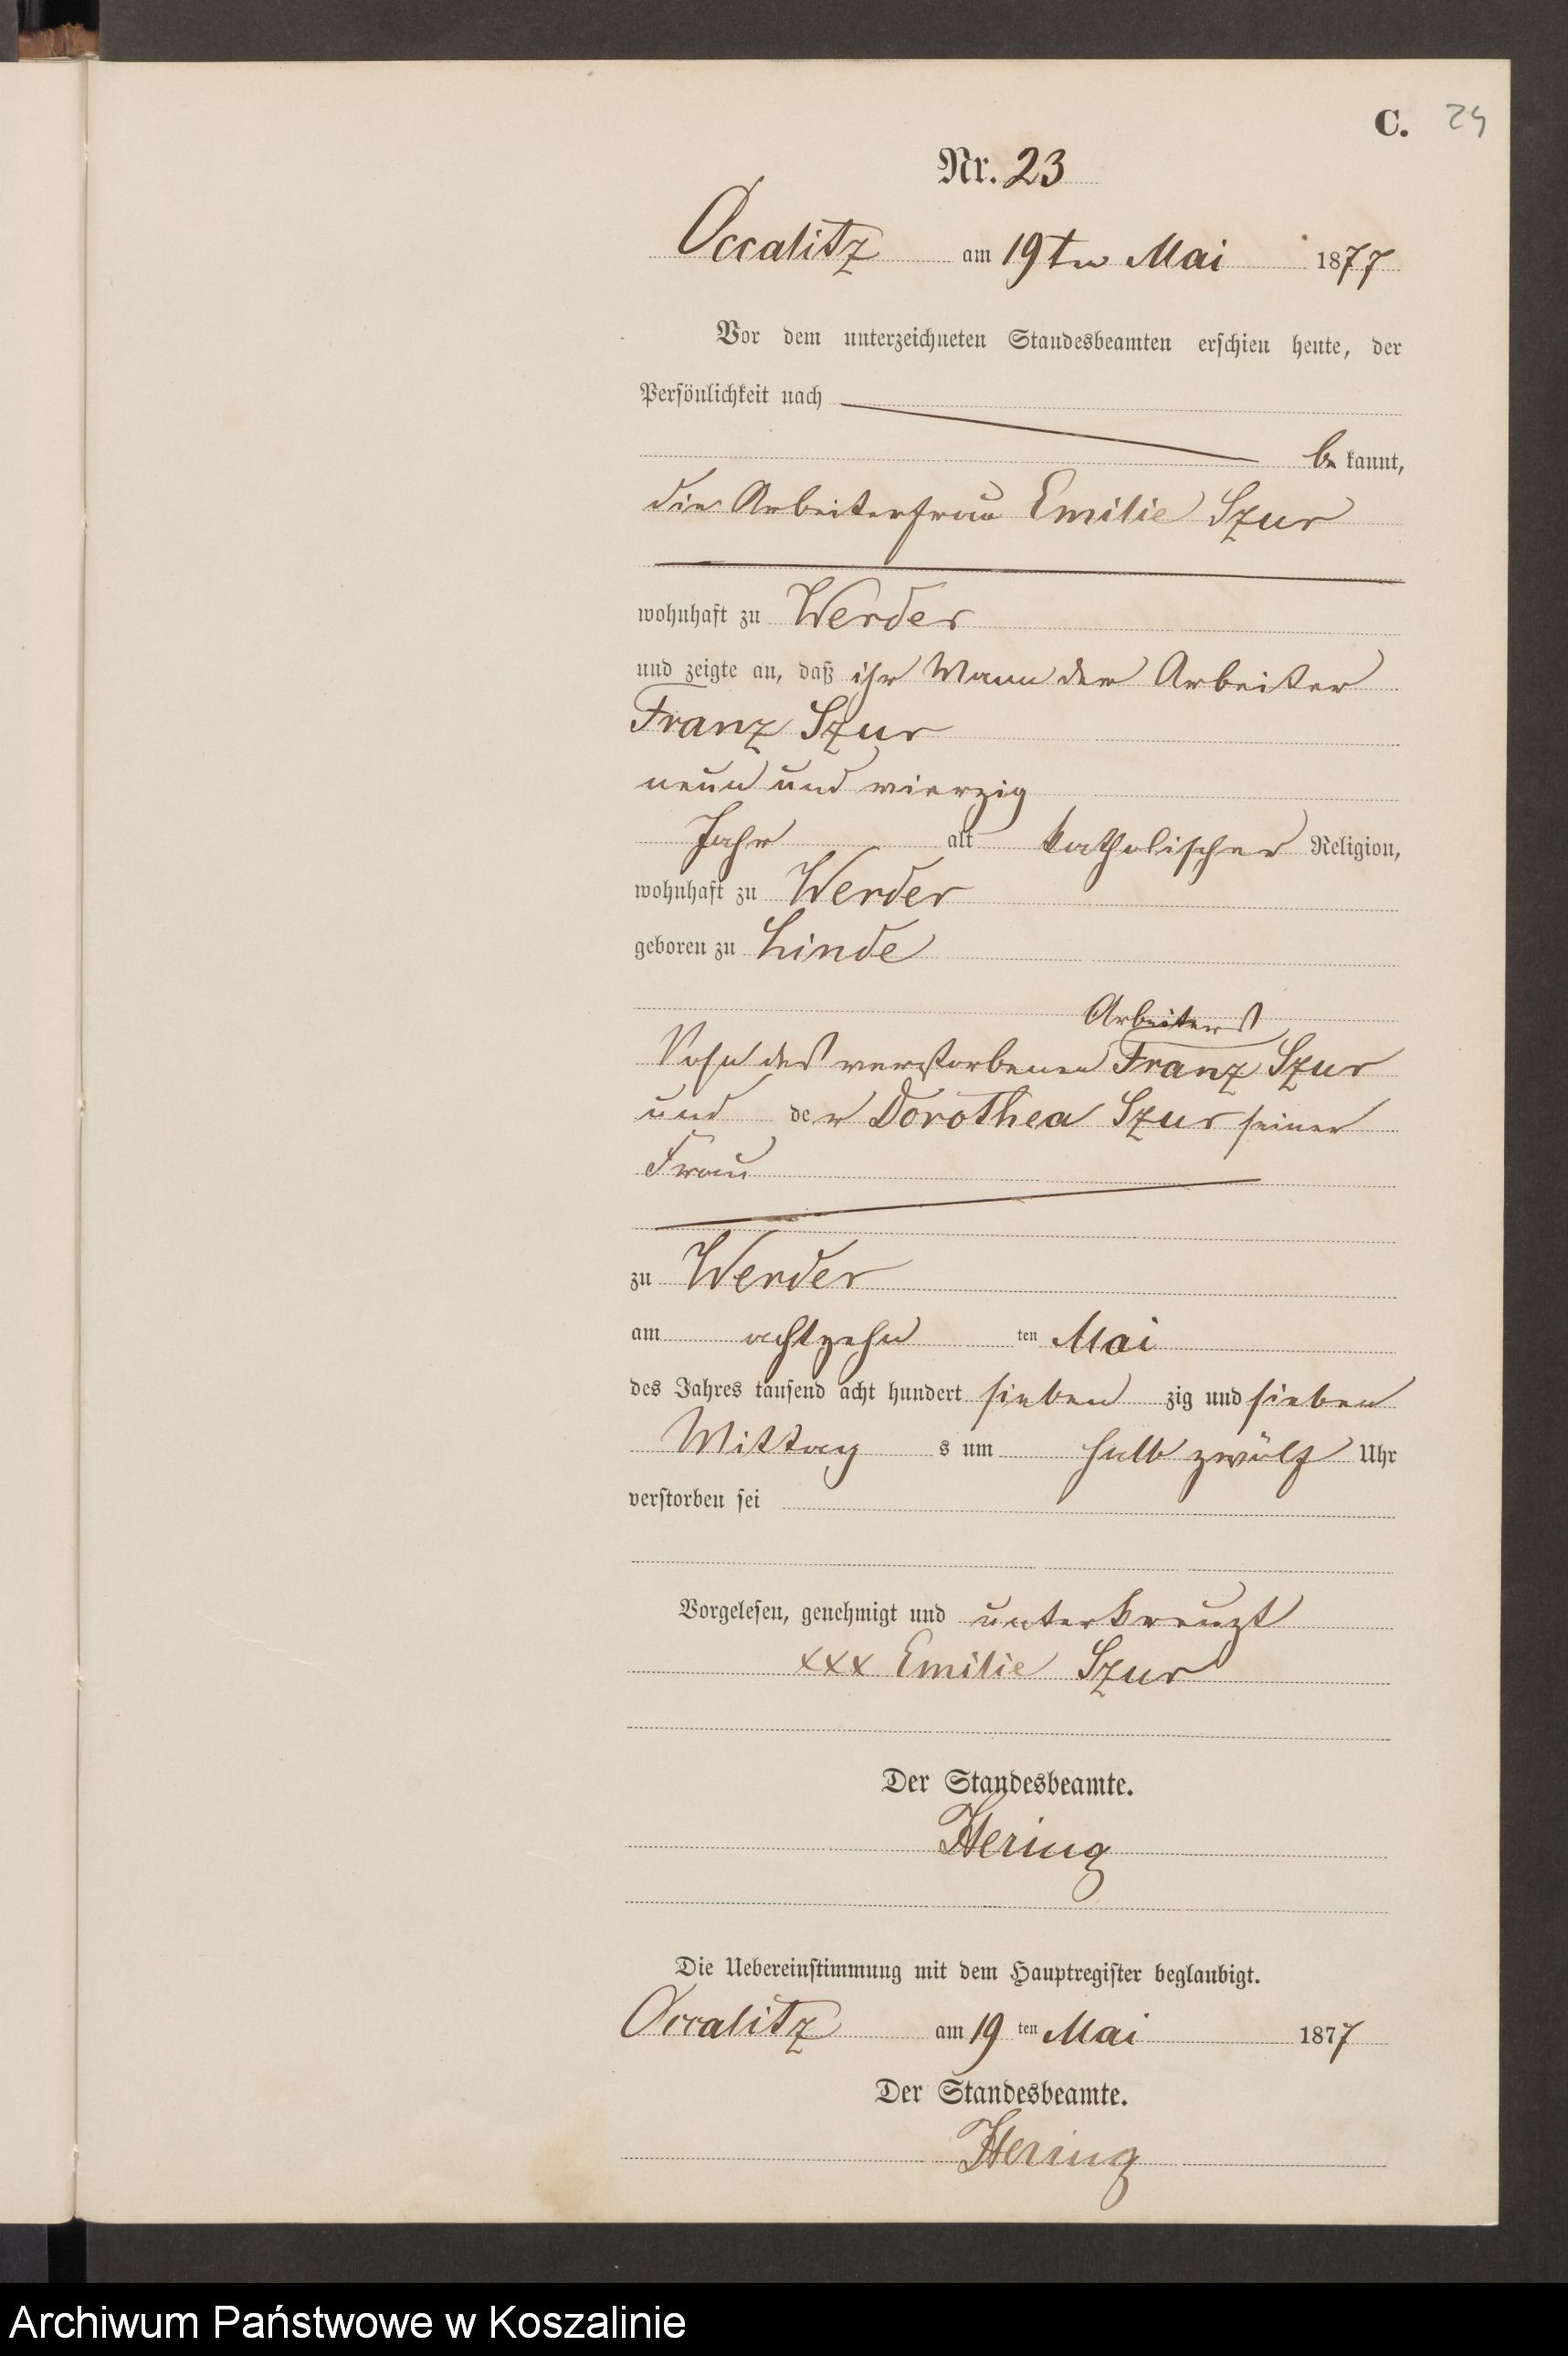 C. 24
Nr. 23
Occalitz am 19ten Mai 1877
Vor dem unterzeichneten Standesbeamten erschien heute, der
Persönlichkeit nach
be kannt,
die Arbeiterfrau Emilie Szur
wohnhaft zu Werder
und zeigte an, daß ihr Mann der Arbeiter
Franz Szur
neun und vierzig
Jahr alt katholischer Religion,
wohnhaft zu Werder
geboren zu Linde
Arbeiters
Sohn des verstorbenen Franz Szur
und der Dorothea Szur seiner
Frau
zu Werder
am achtzehn ten Mai
des Jahres tausend acht hundert sieben zig und sieben
Mittag s um halb zwölf Uhr
verstorben sei
Vorgelesen, genehmigt und unterkreuzt
xxx Emilie Szur
Der Standesbeamte.
Hering
Die Uebereinstimmung mit dem Hauptregister beglaubigt.
Occalitz am 19 ten Mai 1877
Der Standesbeamte.
Hering
Archiwum Państwowe w Koszalinie